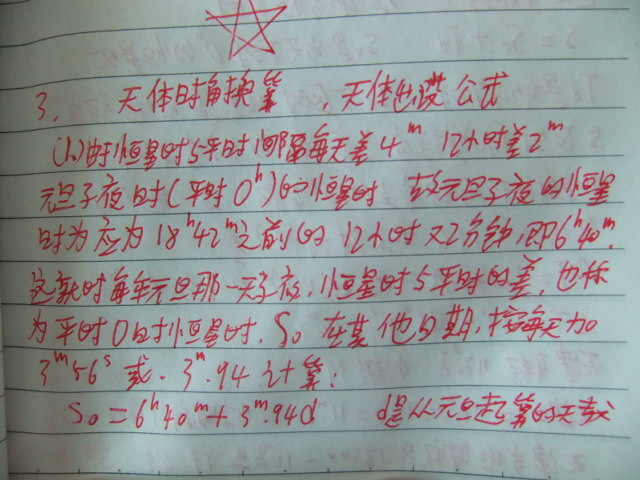 3、 天体时角换算 ，天体出没公式
(h)时恒星时与平时间隔每天差4ᵐ 12小时差2ᵐ
元旦子夜时(平时0ʰ)的恒星时 故元旦子夜的恒星
时为应为18ʰ42ᵐ之前的12小时又2分钟,即6ʰ40ᵐ.
这就时每年元旦那一天子夜,恒星时与平时的差,也称
为平时0时恒星时. S₀ 在其他日期,按每天加
3ᵐ56ˢ 或 3ᵐ.94计算:
S₀=6ʰ40ᵐ+3ᵐ.94d d是从元旦起算的天数